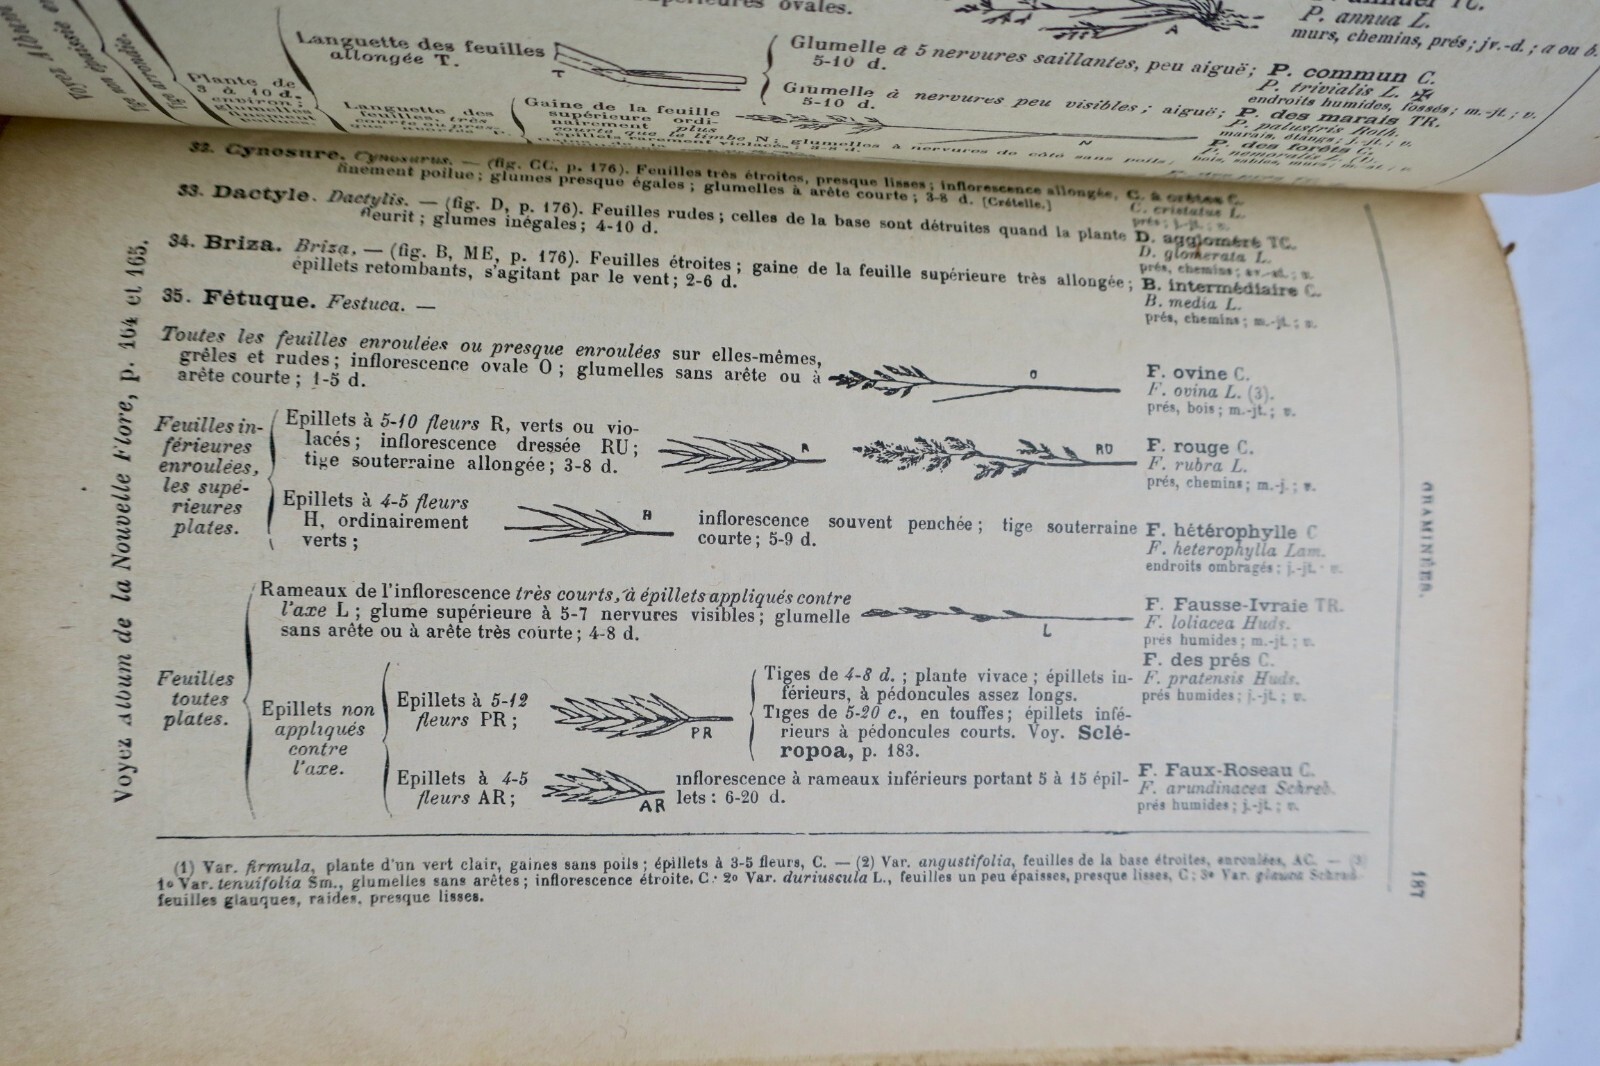 périeures ovales.
P. annua L.
murs, chemins, prés; jr.-d.; a ou b.
Languette des feuilles
allongée T.
T
A
Glumelle à 5 nervures saillantes, peu aiguë;
5-10 d.
P. commun C.
P. trivialis L. ✠
endroits humides, fossés; m.-jt.; v.
Glumelle à nervures peu visibles; aiguë;
5-10 d.
P. des marais TR.
P. palustris Roth.
marais, étangs; j.-jt.; v.
Plante de
3 à 10 d.
environ;
Languette des
feuilles, très
Gaine de la feuille
supérieure ordi-
nairement plus
courte que le limbe N;
glumelles à nervures de côté sans poils;
N
P. des forêts C.
P. nemoralis L.
32. Cynosure. Cynosurus. — (fig. CC, p. 176). Feuilles très étroites, presque lisses; inflorescence allongée,
finement poilue; glumes presque égales; glumelles à arête courte; 3-8 d. [Crételle.]
C. à crêtes C.
C. cristatus L.
prés; j.-jt.; v.
33. Dactyle. Dactylis. — (fig. D, p. 176). Feuilles rudes; celles de la base sont détruites quand la plante
fleurit; glumes inégales; 4-10 d.
D. aggloméré TC.
D. glomerata L.
prés, chemins; av.-st.; v.
34. Briza. Briza. — (fig. B, ME, p. 176). Feuilles étroites; gaine de la feuille supérieure très allongée;
épillets retombants, s'agitant par le vent; 2-6 d.
B. intermédiaire C.
B. media L.
prés, chemins; m.-jt.; v.
35. Fétuque. Festuca. —
Toutes les feuilles enroulées ou presque enroulées sur elles-mêmes,
grêles et rudes; inflorescence ovale O; glumelles sans arête ou à
arête courte; 1-5 d.
O
F. ovine C.
F. ovina L. (3).
prés, bois; m.-jt.; v.
Feuilles in-
férieures
enroulées,
les supé-
rieures
plates.
Epillets à 5-10 fleurs R, verts ou vio-
lacés; inflorescence dressée RU;
tige souterraine allongée; 3-8 d.
R
RU
F. rouge C.
F. rubra L.
prés, chemins; m.-j.; v.
Epillets à 4-5 fleurs
H, ordinairement
verts;
H
inflorescence souvent penchée; tige souterraine
courte; 5-9 d.
F. hétérophylle C
F. heterophylla Lam.
endroits ombragés; j.-jt. v.
Feuilles
toutes
plates.
Rameaux de l'inflorescence très courts, à épillets appliqués contre
l'axe L; glume supérieure à 5-7 nervures visibles; glumelle
sans arête ou à arête très courte; 4-8 d.
L
F. Fausse-Ivraie TR.
F. loliacea Huds.
prés humides; m.-jt.; v.
Epillets non
appliqués
contre
l'axe.
Epillets à 5-12
fleurs PR;
PR
Tiges de 4-8 d.; plante vivace; épillets in-
férieurs, à pédoncules assez longs.
F. des prés C.
F. pratensis Huds.
prés humides; j.-jt.; v.
Tiges de 5-20 c., en touffes; épillets infé-
rieurs à pédoncules courts. Voy. Sclé-
ropoa, p. 183.
Epillets à 4-5
fleurs AR;
AR
inflorescence à rameaux inférieurs portant 5 à 15 épil-
lets: 6-20 d.
F. Faux-Roseau C.
F. arundinacea Schreb.
prés humides; j.-jt.; v.
(1) Var. firmula, plante d'un vert clair, gaines sans poils; épillets à 3-5 fleurs, C. — (2) Var. angustifolia, feuilles de la base étroites, enroulées, AC. — (3)
1o Var. tenuifolia Sm., glumelles sans arêtes; inflorescence étroite, C. 2o Var. duriuscula L., feuilles un peu épaisses, presque lisses, C; 3e Var. glauca Schrad.
feuilles glauques, raides, presque lisses.
Voyez Album de la Nouvelle Flore, p. 164 et 165.
GRAMINÉES.
187